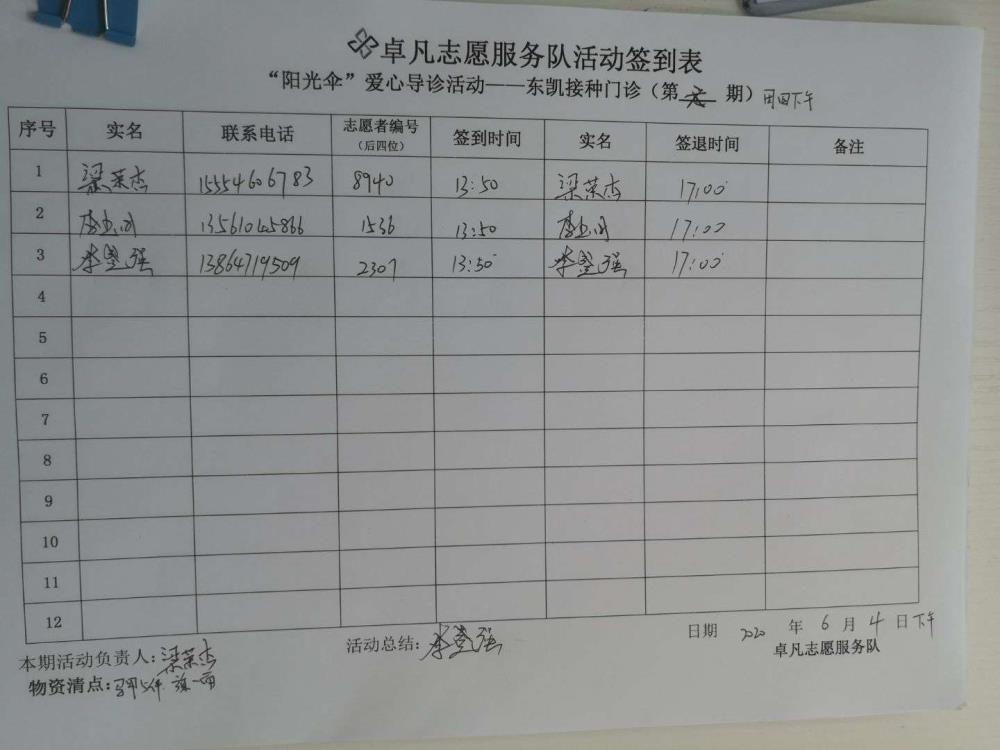 卓凡志愿服务队活动签到表
“阳光伞”爱心导诊活动——东凯接种门诊（第 期）周四下午
序号 实名 联系电话 志愿者编号（后四位） 签到时间 实名 签退时间 备注
1 梁荣杰 15554606783 8940 13:50 梁荣杰 17:00
2 13561045866 1536 13:50 17:00
3 李登强 13864719509 2307 13:50 李登强 17:00
4
5
6
7
8
9
10
11
12
本期活动负责人:梁荣杰 活动总结:李登强 日期 2020 年 6 月 4 日下午
物资清点:马甲5件 旗一面 卓凡志愿服务队